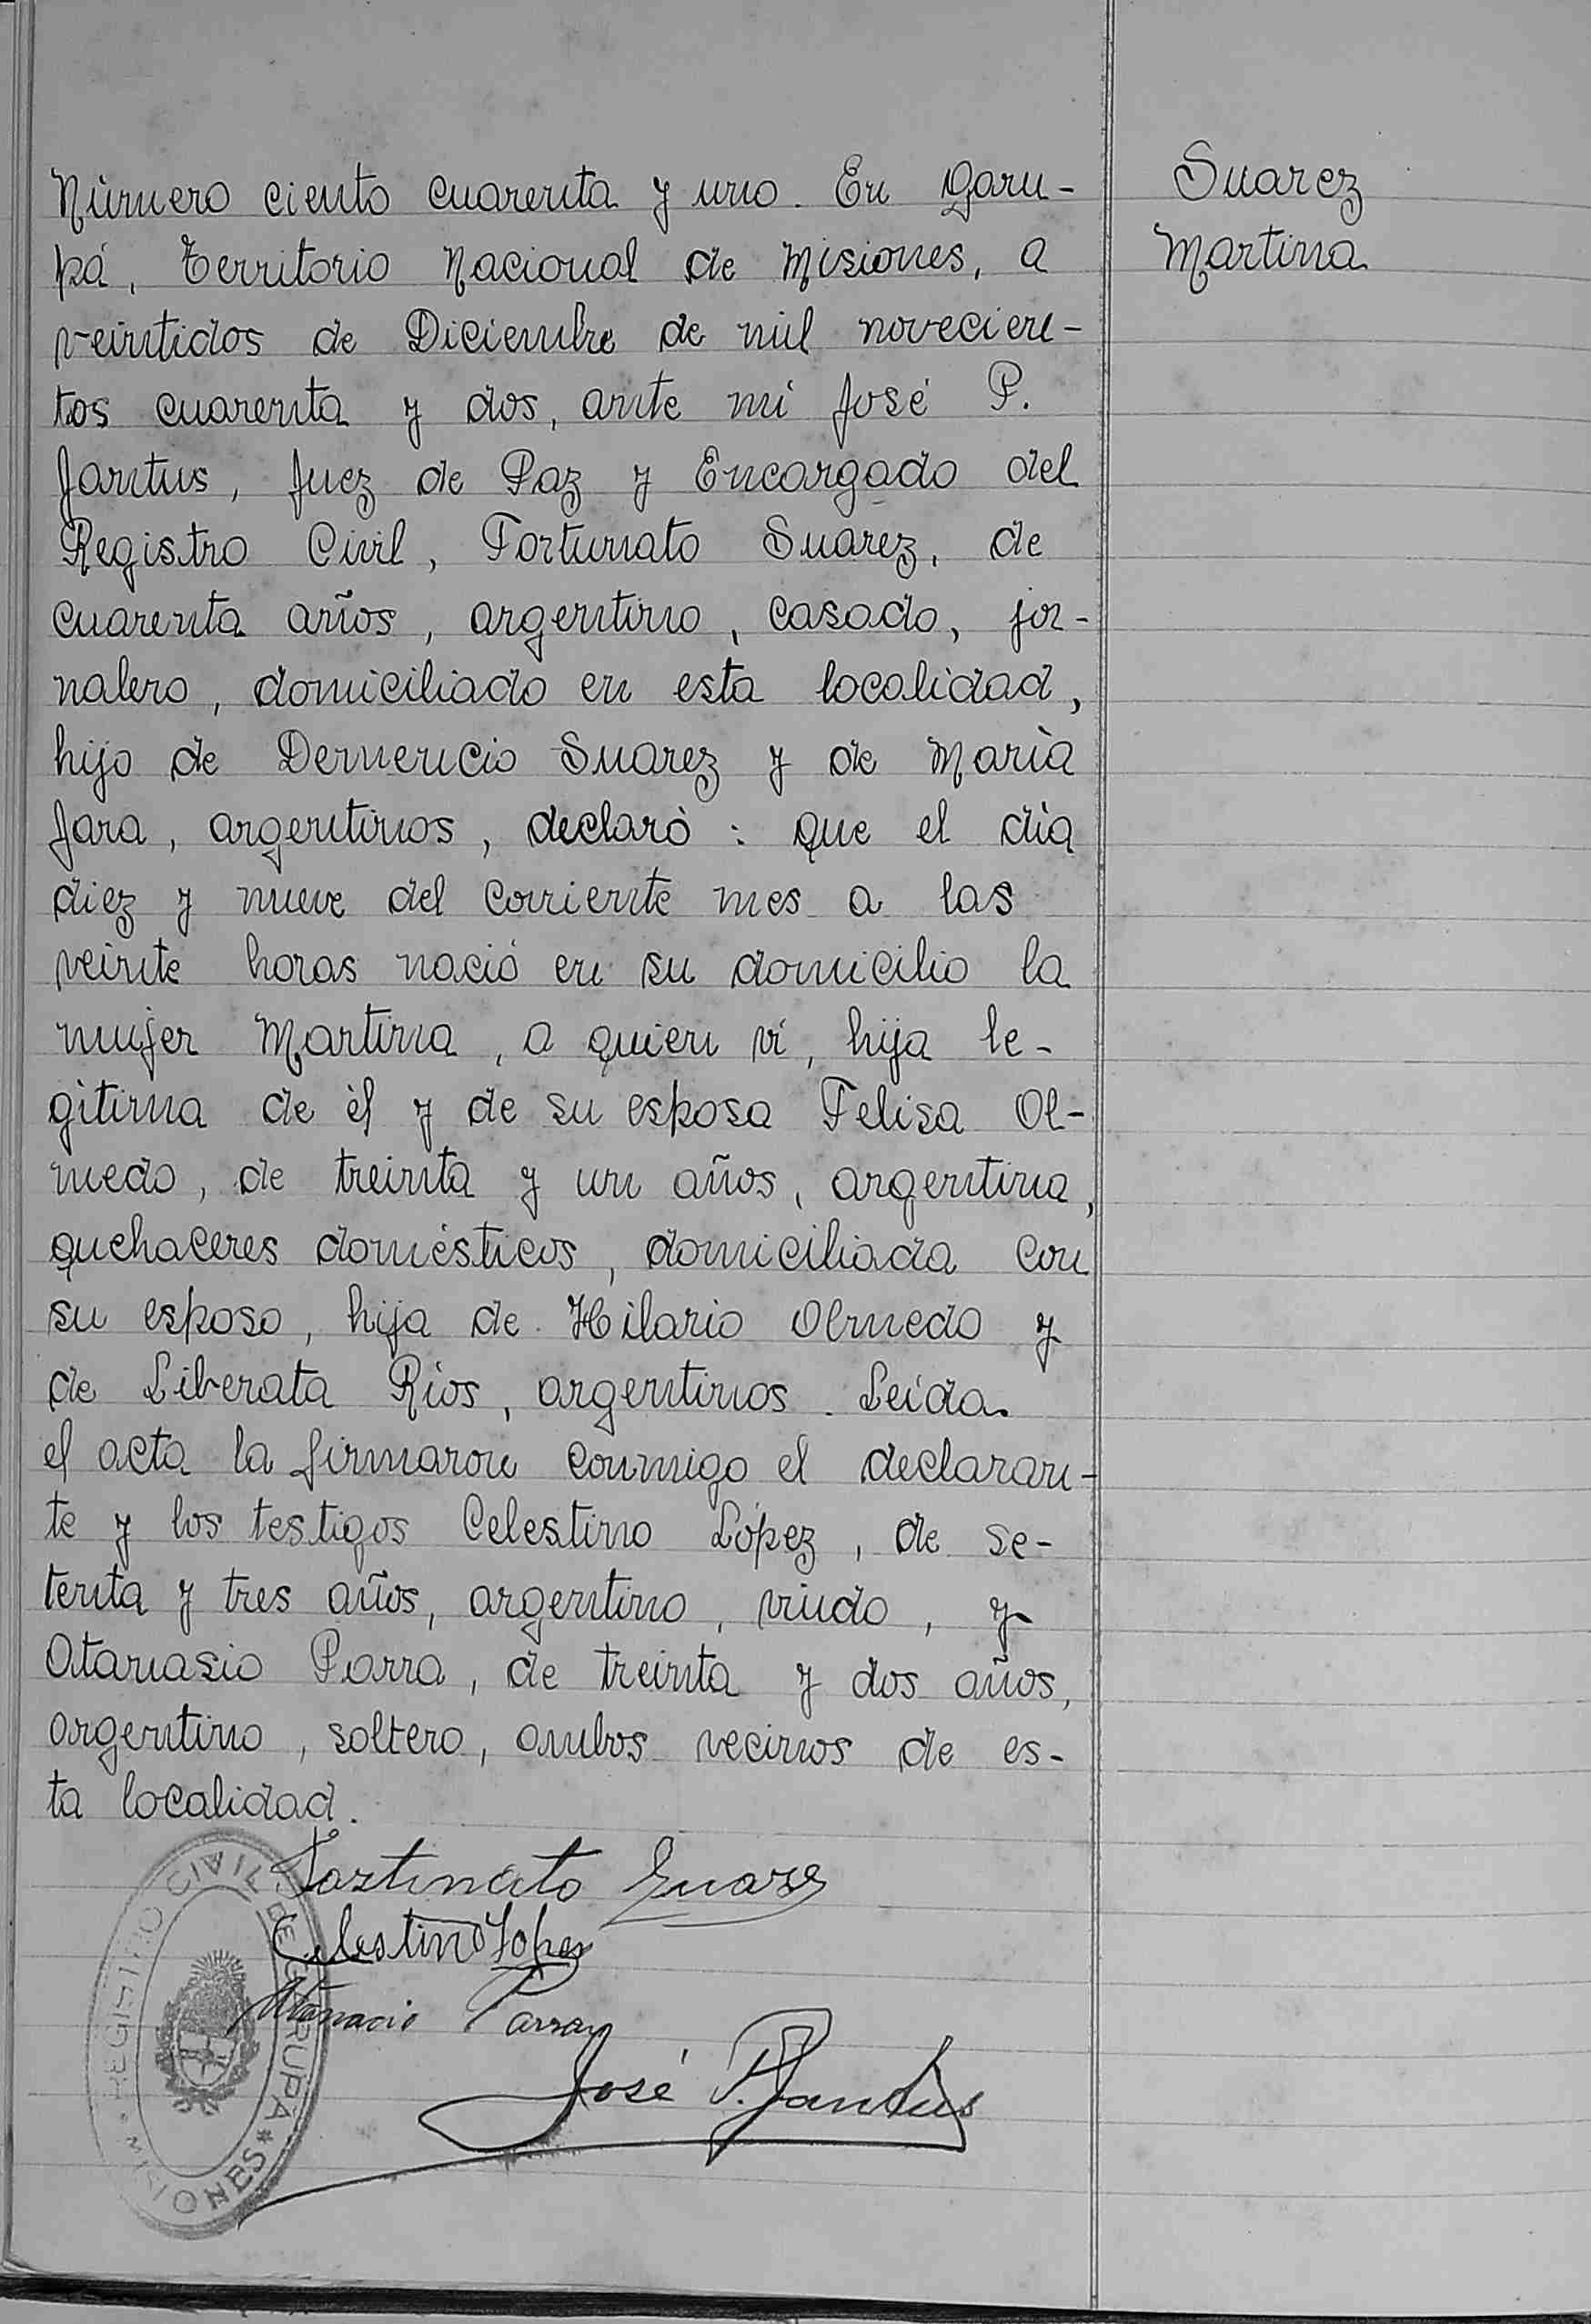 Suarez
Martina
Número ciento cuarenta y uno. En Garu-
pá, Territorio Nacional de Misiones, a
veintidos de Diciembre de mil novecien-
tos cuarenta y dos, ante mi José P.
Jantus, Juez de Paz y Encargado del
Registro Civil, Fortunato Suarez, de
cuarenta años, argentino, casado, jor-
nalero, domiciliado en esta localidad,
hijo de Demencio Suarez y de Marìa
Jara, argentinos, declarò: Que el dìa
diez y nueve del corriente mes a las
veinte horas nació en su domicilio la
mujer Martina, a quien ví, hija le-
gìtima de èl y de su esposa Felisa Ol-
medo, de treinta y un años, argentina,
quehaceres domésticos, domiciliada con
su esposo, hija de Hilario Olmedo y
de Liberata Rìos, argentinos. Leída
el acta la firmaron conmigo el declaran-
te y los testigos Celestino López, de se-
tenta y tres años, argentino, viudo, y
Atanasio Parra, de treinta y dos años,
argentino, soltero, ambos vecinos de es-
ta localidad.
Fortunato Suarez
Celestino Lopez
Atanacio Parra
José P. Jantus
REGISTRO CIVIL DE GARUPÁ * MISIONES *